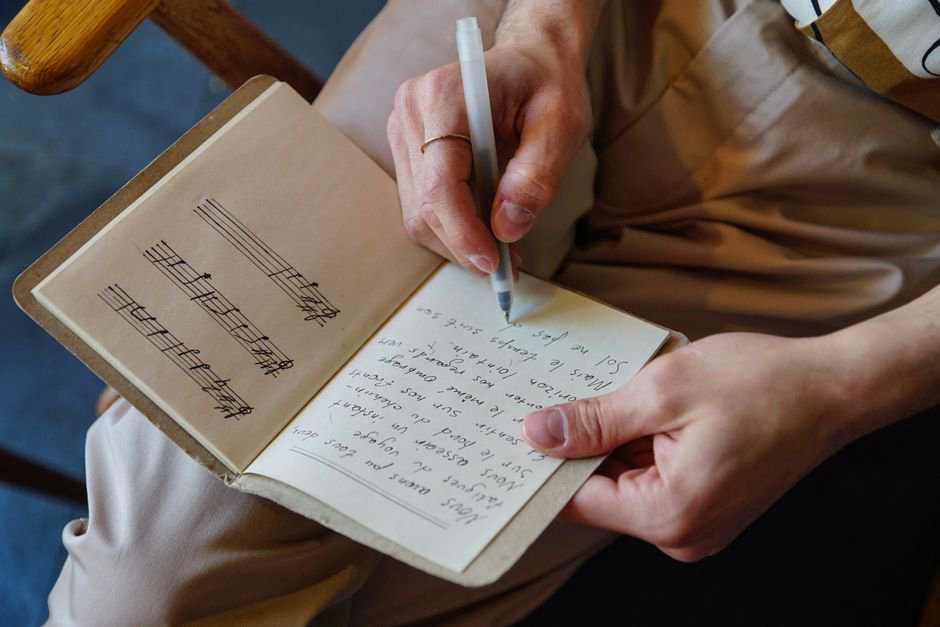 Nous avons pu tous deux
fatigues du voyage
Nous asseoir un instant
Sur le bord du chemin-
sentir sur nos fronts
le même ombrage
porter nos regards vers
orizon lointain.
Mais le temps suit son
Sol ne pas